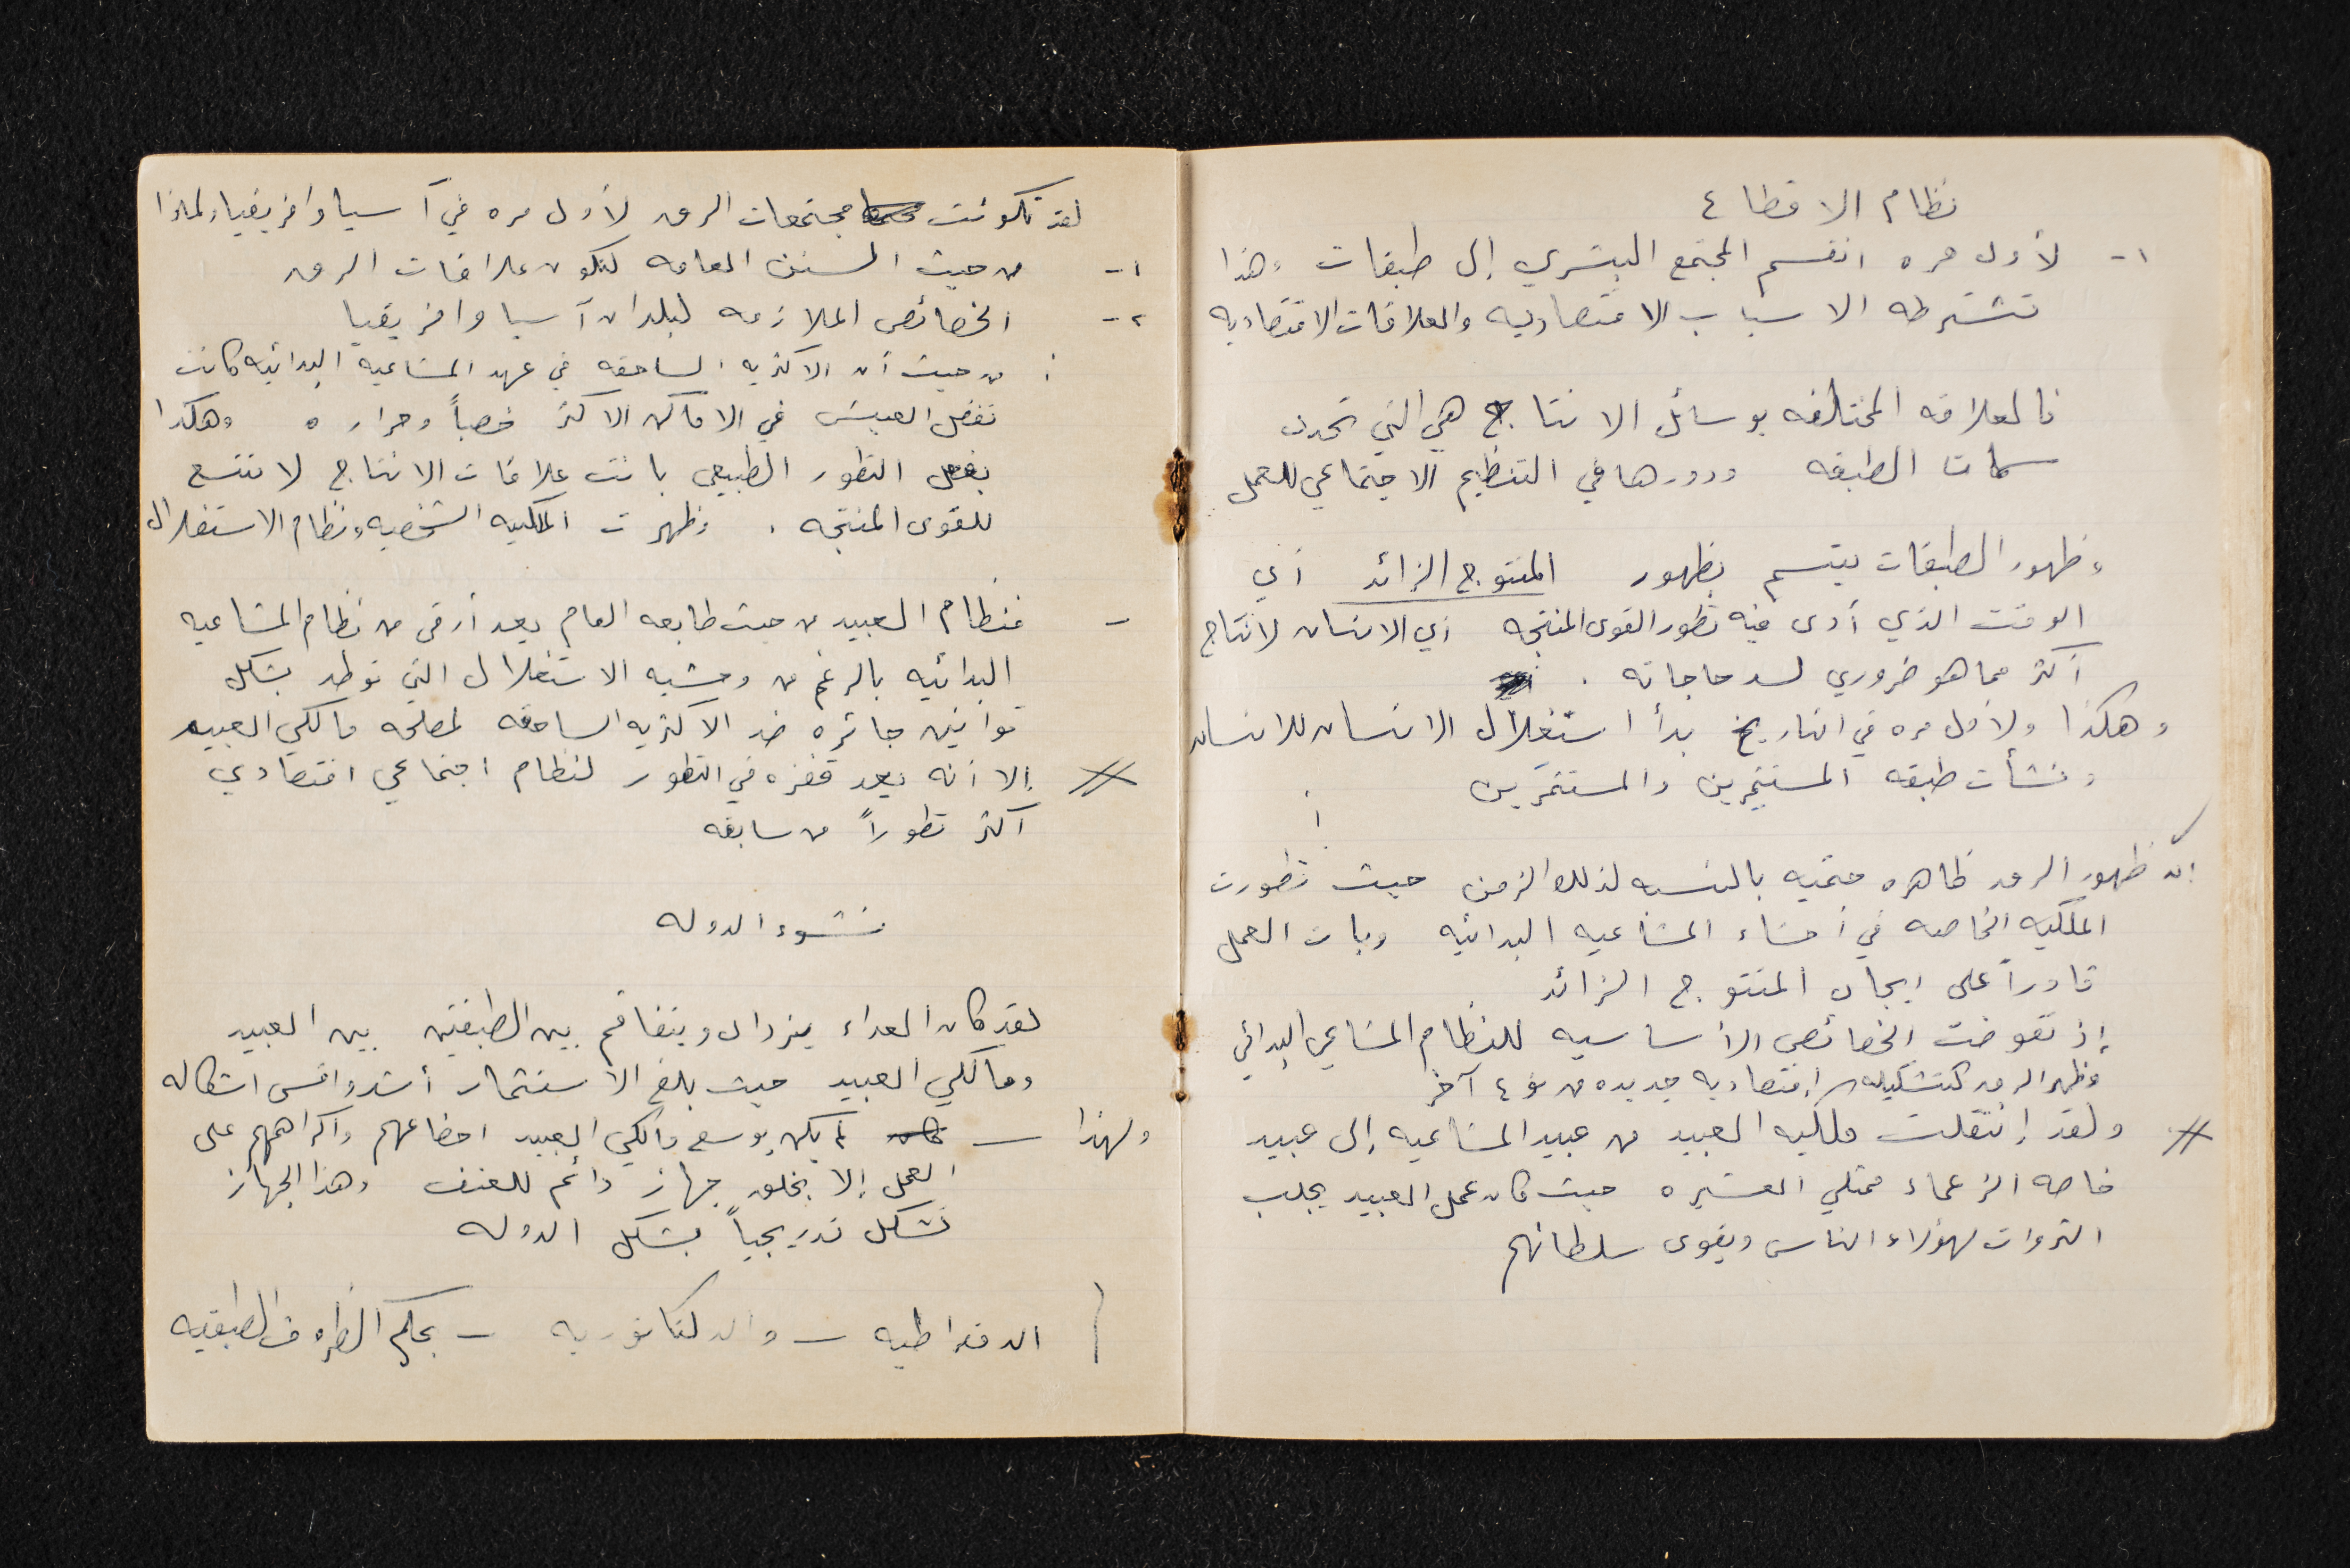 نظام الاقطاع
١- لأول مره انقسم المجتمع البشري إلى طبقات وهذا
تشترطه الاسباب الاقتصاديه والعلاقات الاقتصاديه
فالعلاقه المختلفه بوسائل الانتاج هي التي تحدد
سمات الطبقه ودورها في التنظيم الاجتماعي للعمل
وظهور الطبقات يتسم بظهور المنتوج الزائد أي
الوقت الذي أدى فيه تطور القوى المنتجه أي الانسان لانتاج
أكثر مما هو ضروري لسد حاجاته .
وهكذا ولأول مره في التاريخ بدأ استغلال الانسان للانسان
ونشأت طبقه المستثمِرين والمستثمَرين
إن ظهور الرق ظاهره حتميه بالنسبه لذلك الزمن حيث تطورت
الملكيه الخاصه في أحشاء المشاعيه البدائيه وبات العمل
قادراً على ايجاد المنتوج الزائد
إذ تقوضت الخصائص الأساسيه للنظام المشاعي البدائي
وظهر الرق كتشكيله إقتصاديه جديده من نوع آخر
ولقد إنتقلت ملكيه العبيد من عبيد المشاعيه إلى عبيد
خاصه الزعماء ممثلي العشيره حيث كان عمل العبيد يجلب
الثروات لهؤلاء الناس ويقوى سلطانهم
لقد تكونت مجتمعات الرق لأول مره في آسيا وافريقيا ولماذا
١- من حيث السنن العامه لتكون علاقات الرق
٢- الخصائص الملازمه لبلدان آسيا وافريقيا
: من حيث أن الاكثريه الساحقه في عهد المشاعيه البدائيه كانت
تفضل العيش في الاماكن الاكثر خصباً وحراره وهكذا
بفعل التطور الطبيعي باتت علاقات الانتاج لا تتسع
للقوى المنتجه . وظهرت الملكيه الشخصيه ونظام الاستغلال
- فنظام العبيد من حيث طابعه العام يعد أرقى من نظام المشاعيه
البدائيه بالرغم من وحشيه الاستغلال التي توطد بشكل
قوانين جائره ضد الاكثريه الساحقه لمصلحه مالكي العبيد
إلا أنه يعد قفزه في التطور لنظام اجتماعي اقتصادي
أكثر تطوراً من سابقه
نشوء الدوله
لقد كان العداء يزداد ويتفاقم بين الطبقتين بين العبيد
ومالكي العبيد حيث بلغ الاستثمار أشد واقسى اشكاله
ولهذا - لم يكن بوسع مالكي العبيد اخضاعهم واكراههم على
العمل إلا بخلق جهاز دائم للعنف وهذا الجهاز
تشكل تدريجياً بشكل الدوله
الدقراطيه - والدكتاتوريه - بحكم الظروف الطبقيه